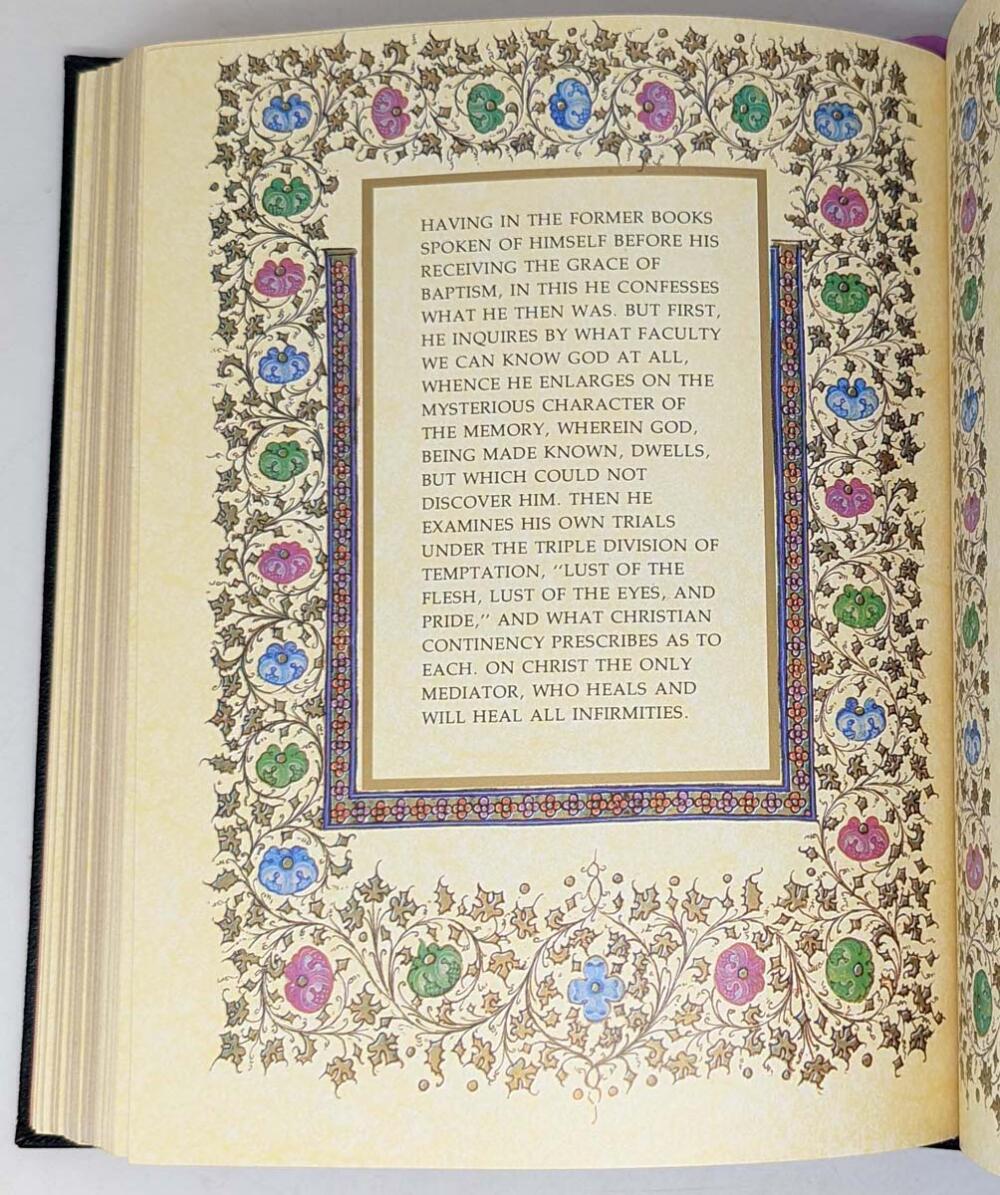 HAVING IN THE FORMER BOOKS
SPOKEN OF HIMSELF BEFORE HIS
RECEIVING THE GRACE OF
BAPTISM, IN THIS HE CONFESSES
WHAT HE THEN WAS. BUT FIRST,
HE INQUIRES BY WHAT FACULTY
WE CAN KNOW GOD AT ALL,
WHENCE HE ENLARGES ON THE
MYSTERIOUS CHARACTER OF
THE MEMORY, WHEREIN GOD,
BEING MADE KNOWN, DWELLS,
BUT WHICH COULD NOT
DISCOVER HIM. THEN HE
EXAMINES HIS OWN TRIALS
UNDER THE TRIPLE DIVISION OF
TEMPTATION, "LUST OF THE
FLESH, LUST OF THE EYES, AND
PRIDE," AND WHAT CHRISTIAN
CONTINENCY PRESCRIBES AS TO
EACH. ON CHRIST THE ONLY
MEDIATOR, WHO HEALS AND
WILL HEAL ALL INFIRMITIES.